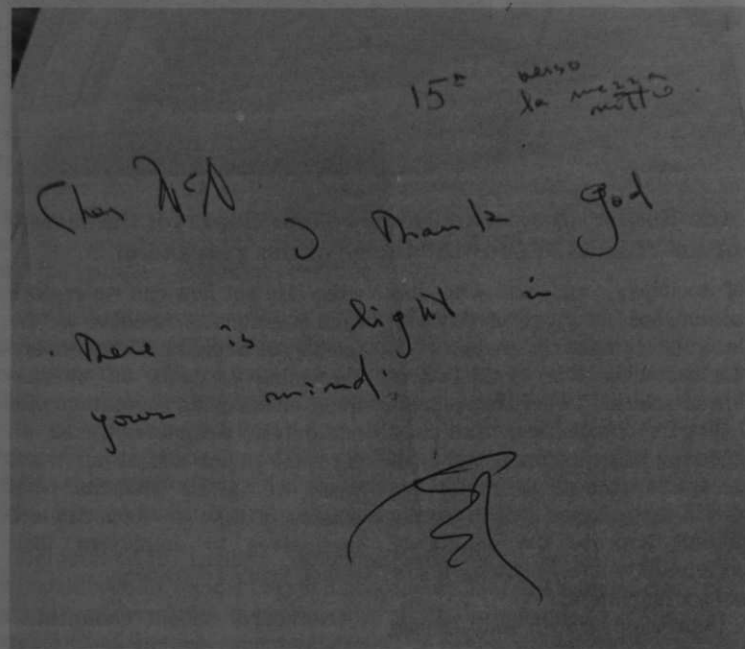 15ᵗ verso
la mezza
notte
Cher McN
I thank god
there is light in
your mind;